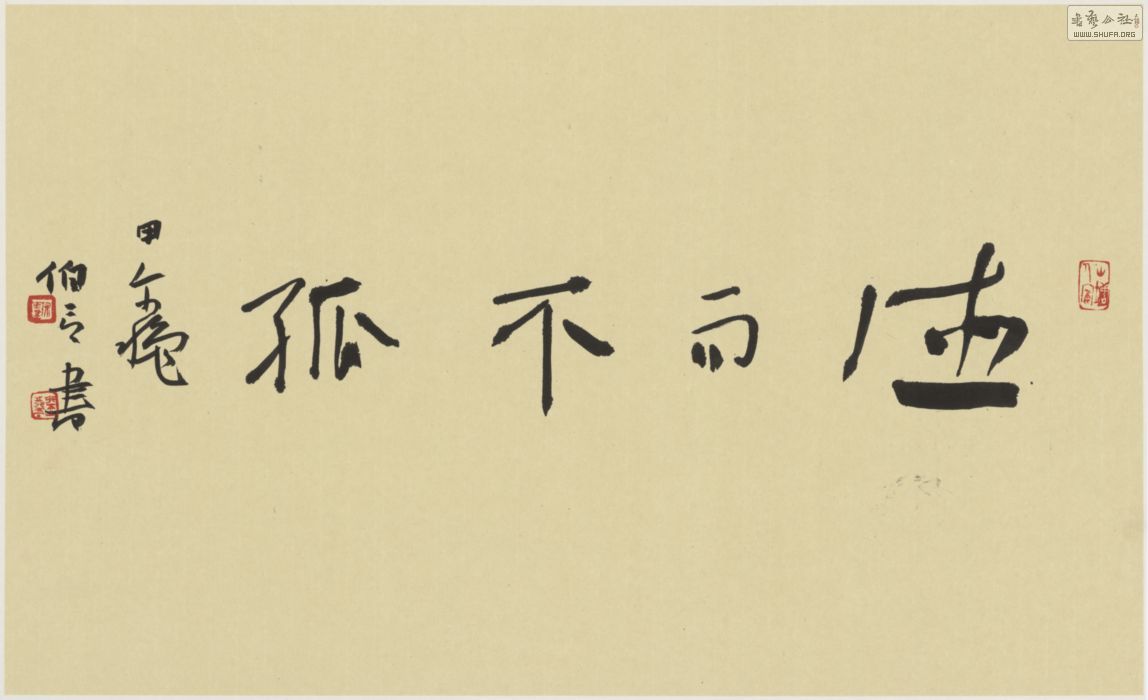 德而不孤
甲午
伯言書
書藝公社
WWW.SHUFA.ORG